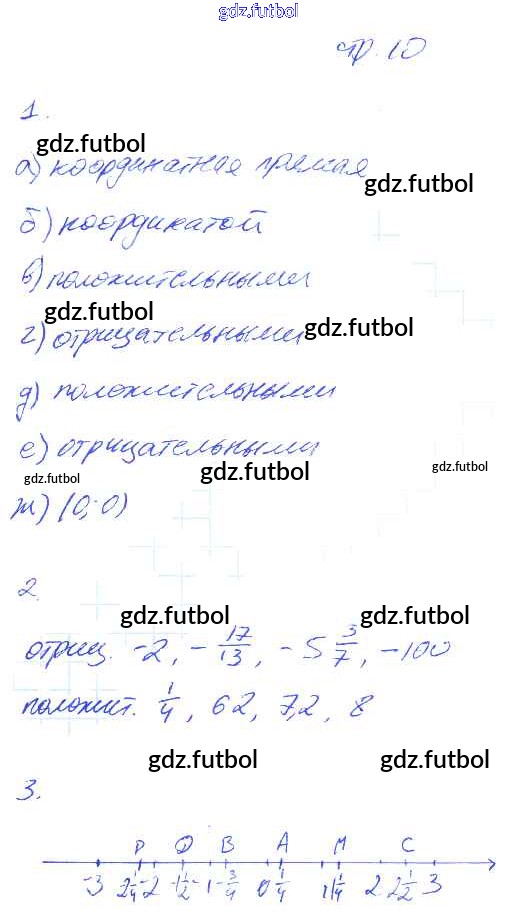 gdz.futbol
стр. 10
1.
gdz.futbol
а) координатная прямая
gdz.futbol
б) координатой
в) положительными
gdz.futbol
г) отрицательными
gdz.futbol
д) положительными
е) отрицательными
gdz.futbol
gdz.futbol
gdz.futbol
ж) (0; 0)
2.
gdz.futbol
gdz.futbol
отриц. -2, -17/13, -5 3/7, -100
положит. 1/4, 62, 7,2, 8
gdz.futbol
gdz.futbol
3.
P D B A M C
-3 2 1/4 -2 -1 1/2 -1 -3/4 0 1/4 1 1 1/4 2 2 1/2 3